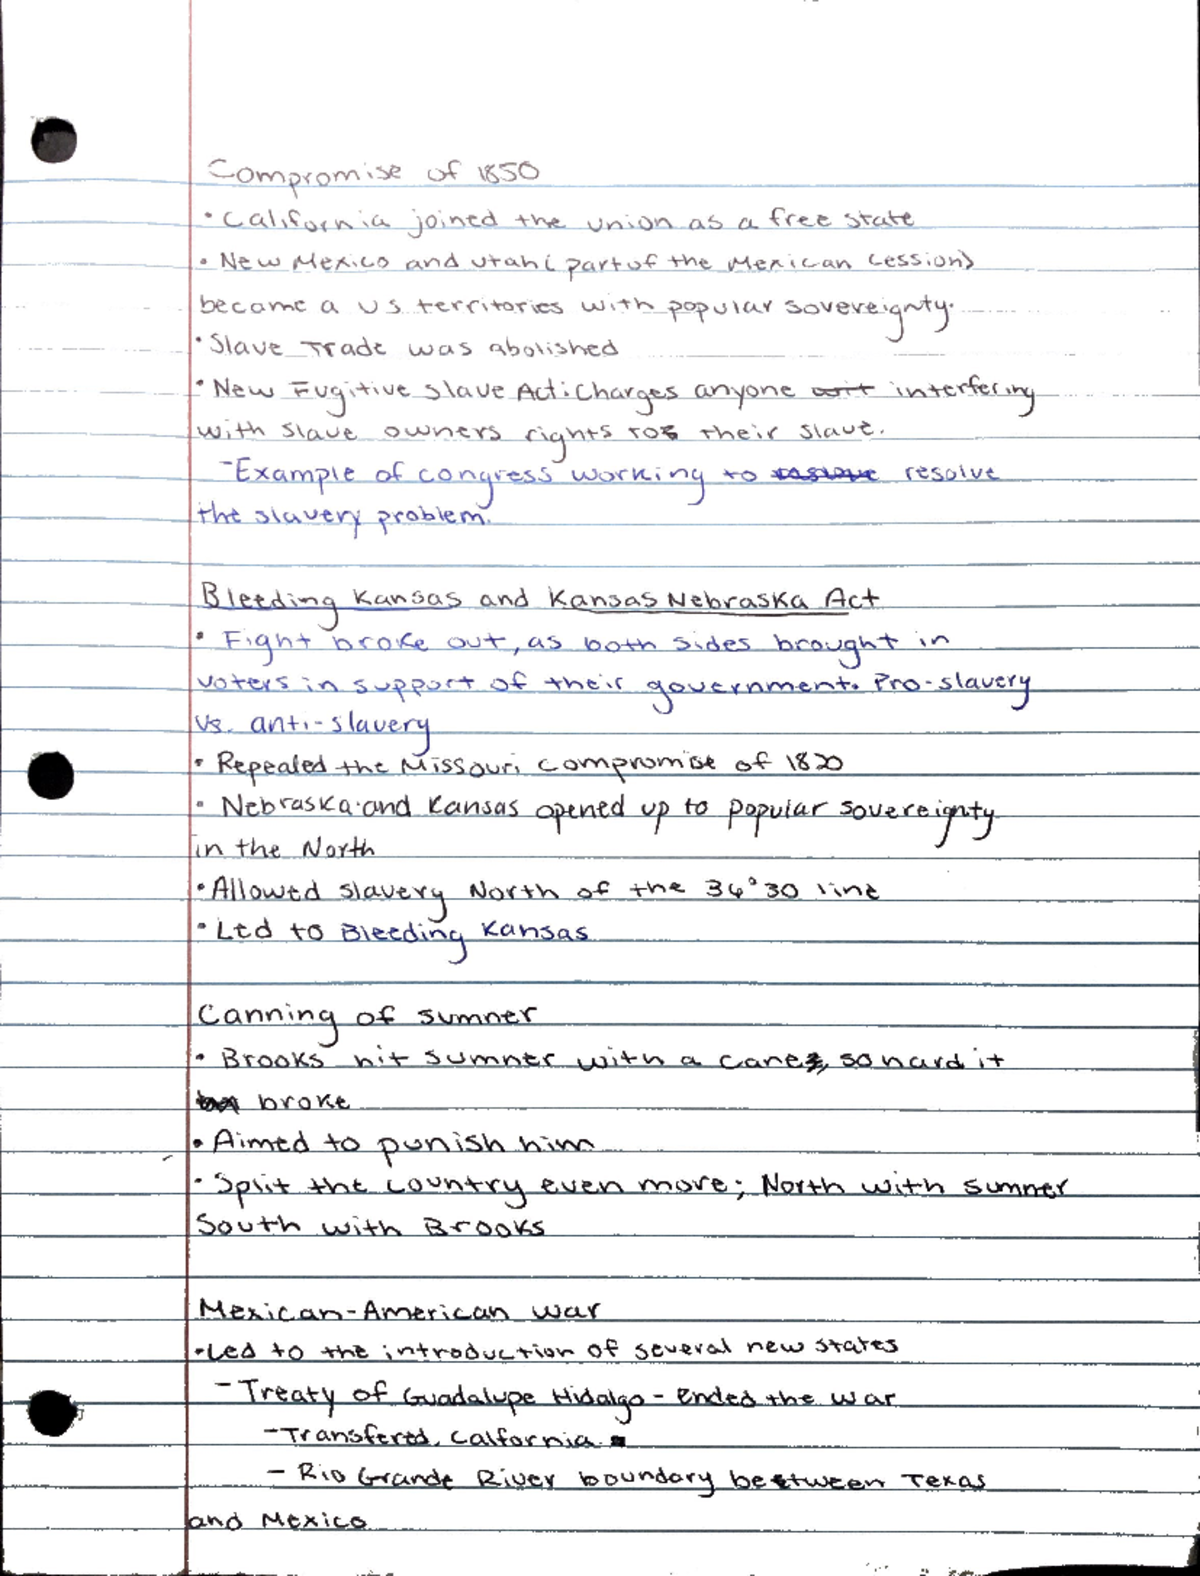 Compromise of 1850
• California joined the union as a free state
• New Mexico and Utah (part of the Mexican Cession)
became a US territories with popular sovereignty.
• Slave Trade was abolished
• New Fugitive Slave Act: Charges anyone interfering
with slave owners rights to their slave.
- Example of congress working to resolve
the slavery problem.
Bleeding Kansas and Kansas Nebraska Act
• Fight broke out, as both sides brought in
voters in support of their government. Pro-slavery
vs. anti-slavery
• Repealed the Missouri compromise of 1820
• Nebraska and Kansas opened up to popular sovereignty
in the North
• Allowed slavery North of the 36°30 line
• Led to Bleeding Kansas
Canning of sumner
• Brooks hit sumner with a cane, so hard it
broke
• Aimed to punish him
• Split the country even more; North with sumner
South with Brooks
Mexican-American war
• Led to the introduction of several new states
- Treaty of Guadalupe Hidalgo - Ended the war
- Transfered, Calfornia
- Rio Grande River boundary between Texas
and Mexico